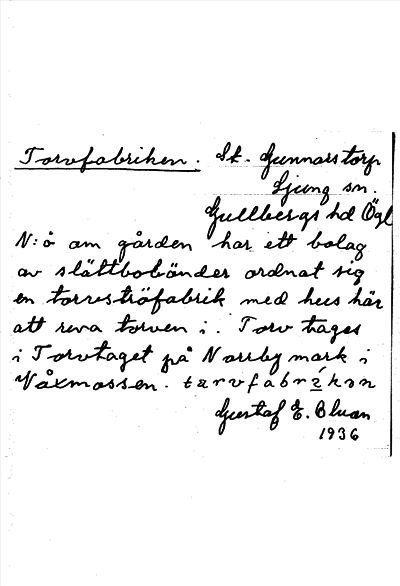 Torvfabriken. St. Gunnarstorp
Ljung sn.
Gullbergs hd Ögl
N:ö om gården har ett bolag
av slättbobönder ordnat sig
en torvströfabrik med hus här
att reva torven i. Torv tages
i Torvtaget på Norrby mark i
Våxmossen. tɑrvfabrékɘn
Gustaf E. Bluan
1936